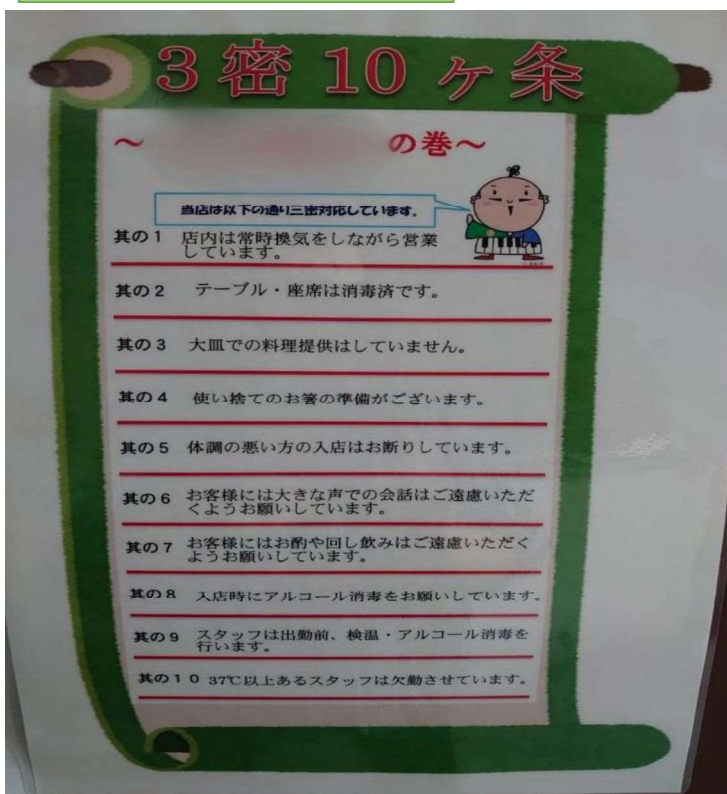 3密10ヶ条
～ の巻～
当店は以下の通り三密対応しています。
其の1 店内は常時換気をしながら営業
しています。
其の2 テーブル・座席は消毒済です。
其の3 大皿での料理提供はしていません。
其の4 使い捨てのお箸の準備がございます。
其の5 体調の悪い方の入店はお断りしています。
其の6 お客様には大きな声での会話はご遠慮いただ
くようお願いしています。
其の7 お客様にはお酌や回し飲みはご遠慮いただく
ようお願いしています。
其の8 入店時にアルコール消毒をお願いしています。
其の9 スタッフは出勤前、検温・アルコール消毒を
行います。
其の10 37℃以上あるスタッフは欠勤させています。